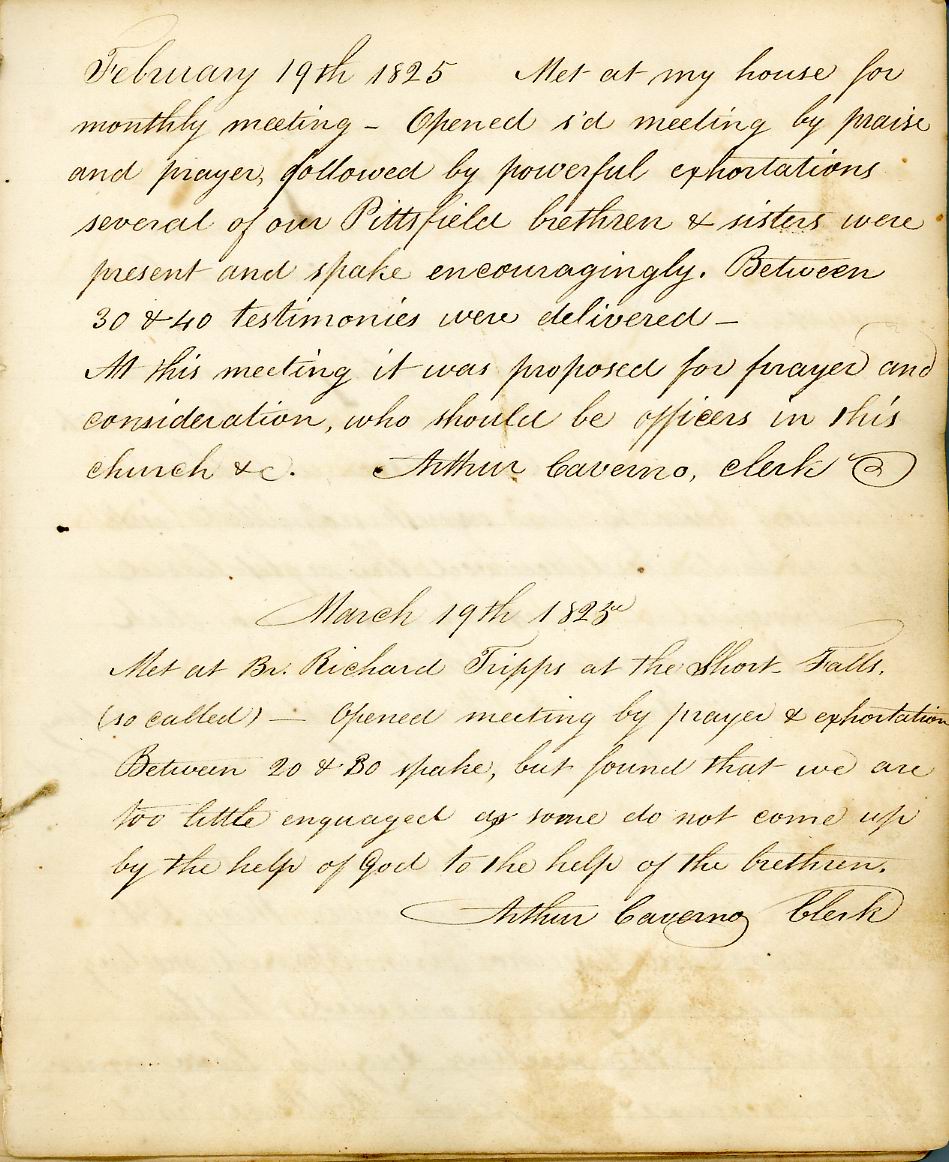 February 19th 1825 Met at my house for
monthly meeting – Opened s'd meeting by praise
and prayer, followed by powerful exhortations
several of our Pittsfield brethren & sisters were
present and spake encouragingly. Between
30 & 40 testimonies were delivered –
At this meeting it was proposed for prayer and
consideration, who should be officers in this
church &c. Arthur Caverno, clerk
March 19th 1825
Met at Br. Richard Tripps at the Short Falls.
(so called) – Opened meeting by prayer & exhortation
Between 20 & 30 spake, but found that we are
too little enguaged as some do not come up
by the help of God to the help of the brethren.
Arthur Caverno Clerk